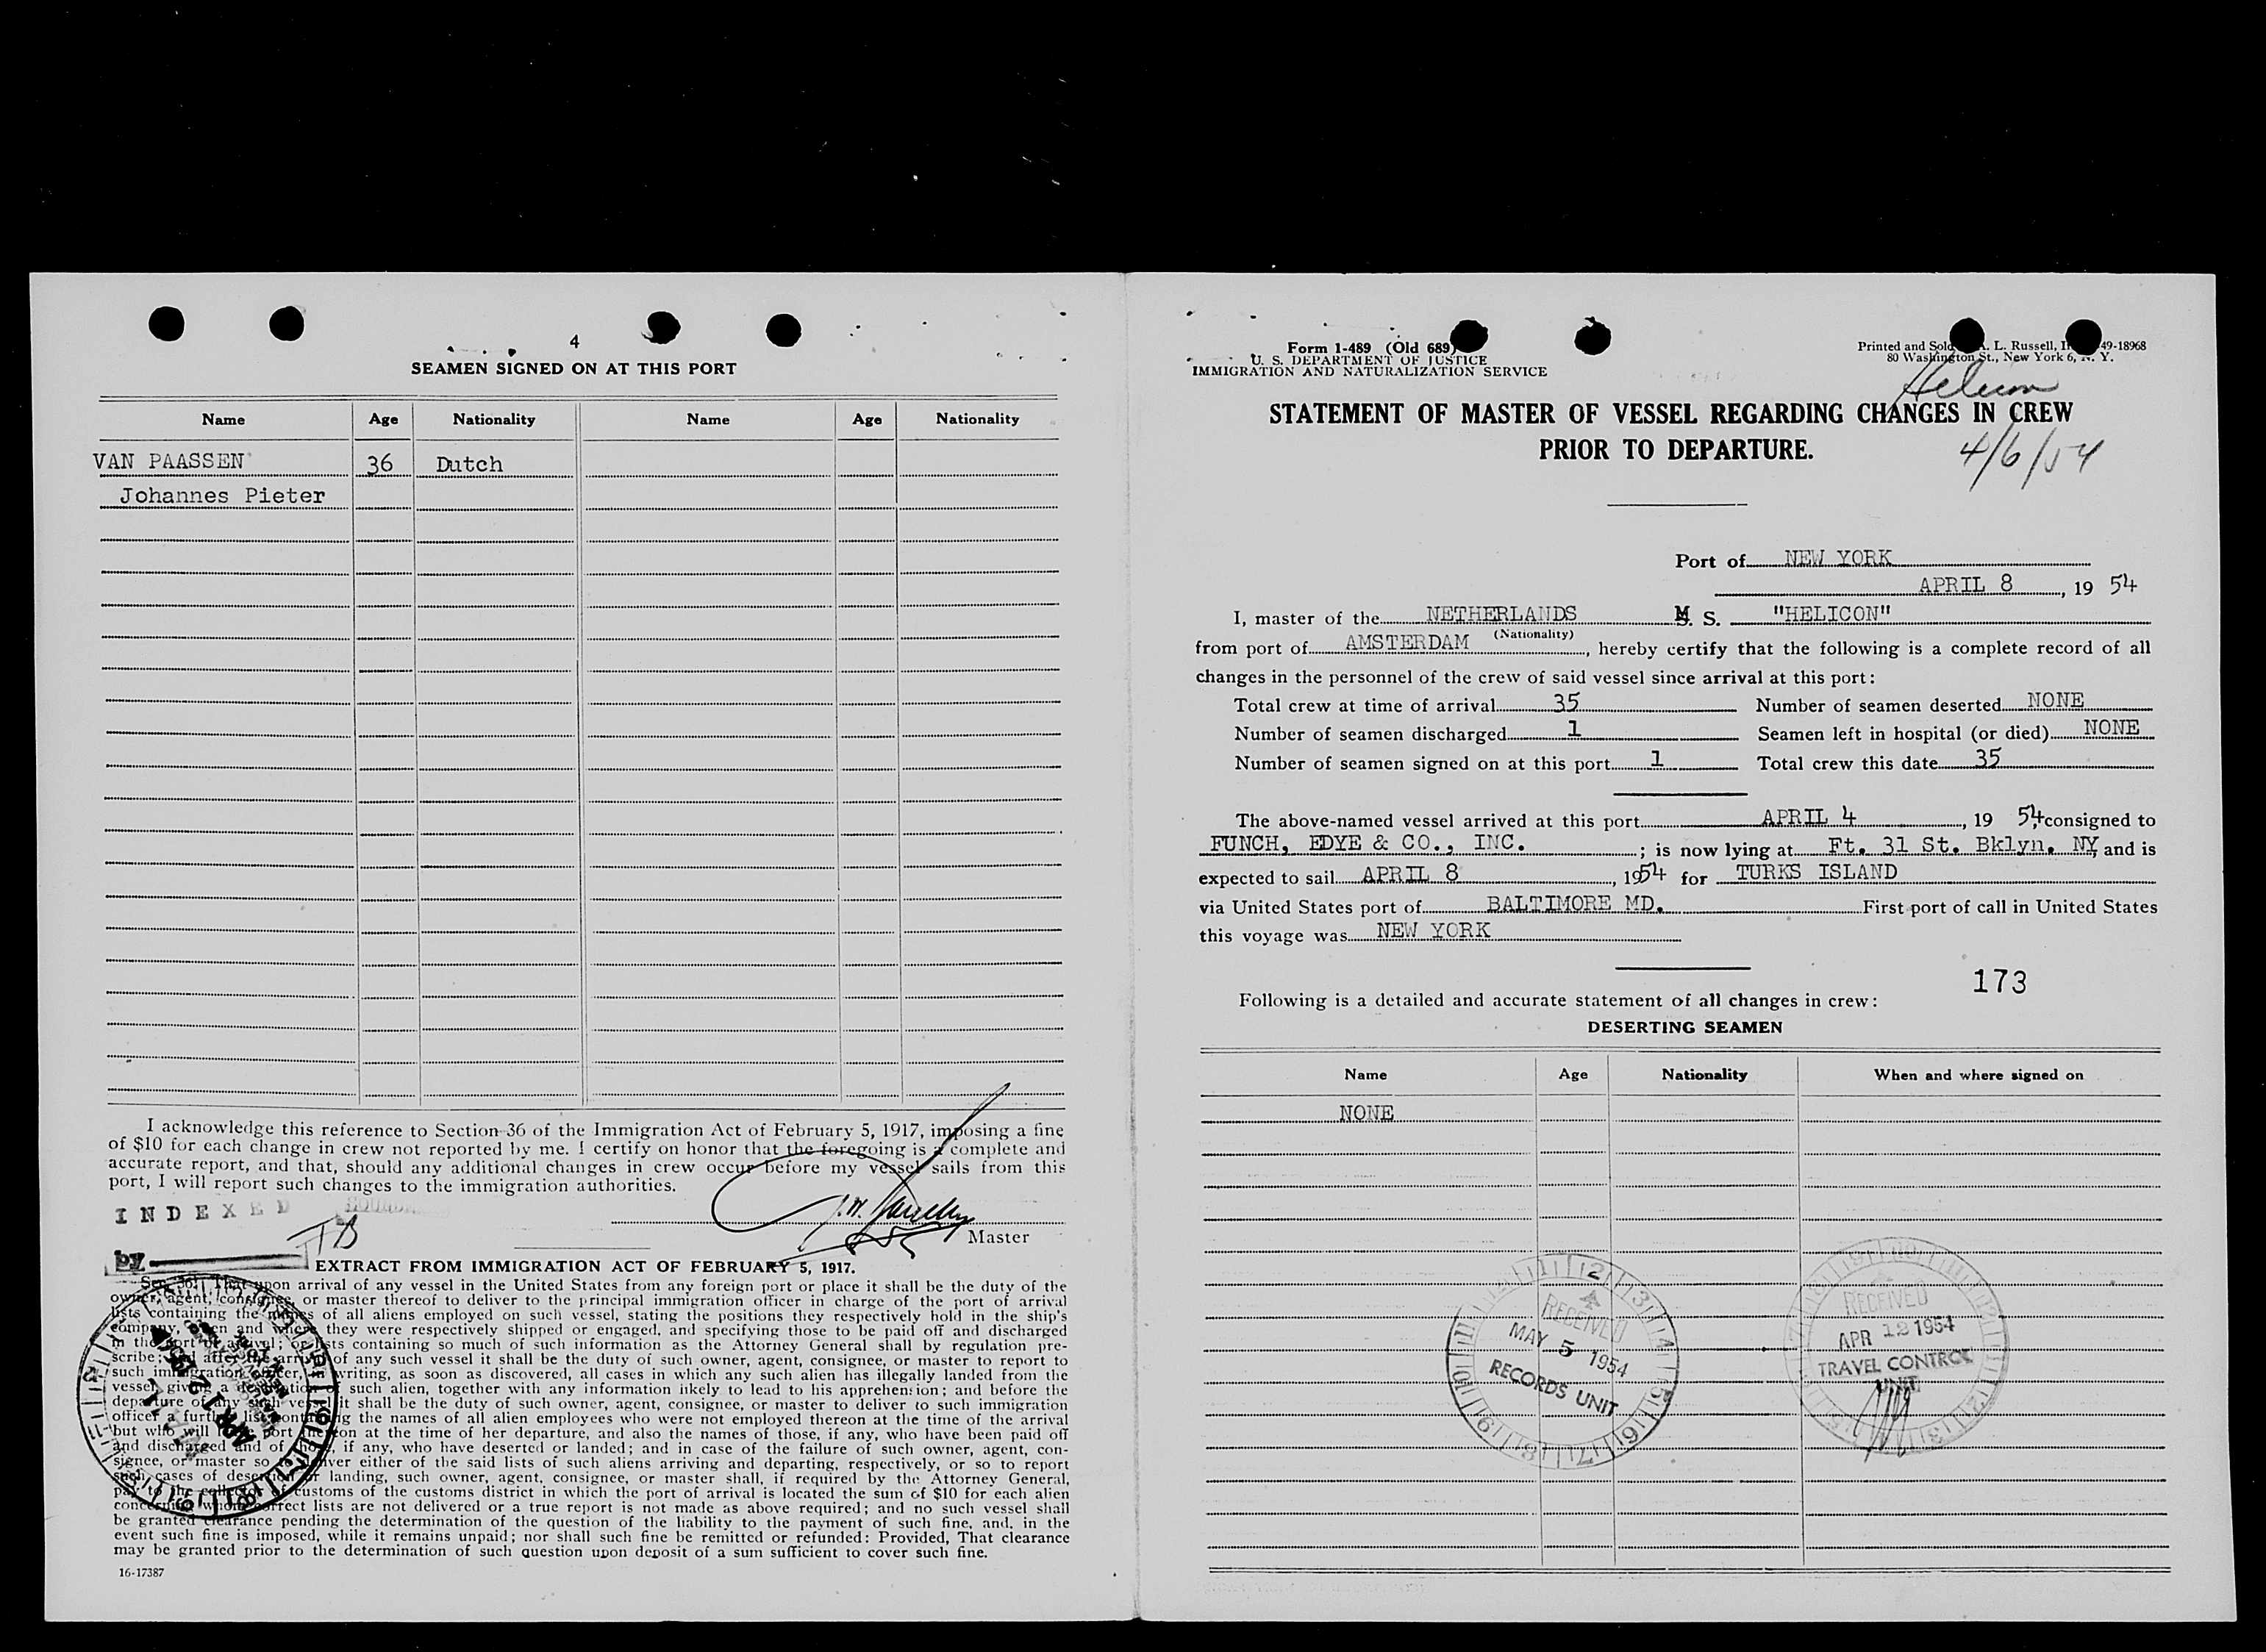 4
SEAMEN SIGNED ON AT THIS PORT
Name Age Nationality Name Age Nationality
VAN PAASSEN 36 Dutch
Johannes Pieter
I acknowledge this reference to Section 36 of the Immigration Act of February 5, 1917, imposing a fine
of $10 for each change in crew not reported by me. I certify on honor that the foregoing is a complete and
accurate report, and that, should any additional changes in crew occur before my vessel sails from this
port, I will report such changes to the immigration authorities.
INDEXED
Master
by
EXTRACT FROM IMMIGRATION ACT OF FEBRUARY 5, 1917.
Sec. 36. That upon arrival of any vessel in the United States from any foreign port or place it shall be the duty of the
owner, agent, consignee, or master thereof to deliver to the principal immigration officer in charge of the port of arrival
lists containing the names of all aliens employed on such vessel, stating the positions they respectively hold in the ship's
company, when and where they were respectively shipped or engaged, and specifying those to be paid off and discharged
in the port of arrival; or lists containing so much of such information as the Attorney General shall by regulation pre-
scribe; and after the arrival of any such vessel it shall be the duty of such owner, agent, consignee, or master to report to
such immigration officer, in writing, as soon as discovered, all cases in which any such alien has illegally landed from the
vessel, giving a description of such alien, together with any information likely to lead to his apprehension; and before the
departure of any such vessel it shall be the duty of such owner, agent, consignee, or master to deliver to such immigration
officer a further list containing the names of all alien employees who were not employed thereon at the time of the arrival
but who will leave port thereon at the time of her departure, and also the names of those, if any, who have been paid off
and discharged and of those, if any, who have deserted or landed; and in case of the failure of such owner, agent, con-
signee, or master so to deliver either of the said lists of such aliens arriving and departing, respectively, or so to report
such cases of desertion or landing, such owner, agent, consignee, or master shall, if required by the Attorney General,
pay to the collector of customs of the customs district in which the port of arrival is located the sum of $10 for each alien
concerning whom correct lists are not delivered or a true report is not made as above required; and no such vessel shall
be granted clearance pending the determination of the question of the liability to the payment of such fine, and, in the
event such fine is imposed, while it remains unpaid; nor shall such fine be remitted or refunded: Provided, That clearance
may be granted prior to the determination of such question upon deposit of a sum sufficient to cover such fine.
16-17387
Form 1-489 (Old 689)
U. S. DEPARTMENT OF JUSTICE
IMMIGRATION AND NATURALIZATION SERVICE
Printed and Sold L. Russell, 49-18968
80 Washington St., New York 6, N. Y.
Helicon
STATEMENT OF MASTER OF VESSEL REGARDING CHANGES IN CREW
PRIOR TO DEPARTURE.
4/6/54
Port of NEW YORK
APRIL 8, 19 54
I, master of the NETHERLANDS M. S. "HELICON"
(Nationality)
from port of AMSTERDAM, hereby certify that the following is a complete record of all
changes in the personnel of the crew of said vessel since arrival at this port:
Total crew at time of arrival 35 Number of seamen deserted NONE
Number of seamen discharged 1 Seamen left in hospital (or died) NONE
Number of seamen signed on at this port 1 Total crew this date 35
The above-named vessel arrived at this port APRIL 4, 19 54, consigned to
FUNCH, EDYE & CO., INC. ; is now lying at Ft. 31 St. Bklyn. NY and is
expected to sail APRIL 8, 1954 for TURKS ISLAND
via United States port of BALTIMORE MD. First port of call in United States
this voyage was NEW YORK
173
Following is a detailed and accurate statement of all changes in crew:
DESERTING SEAMEN
Name Age Nationality When and where signed on
NONE
RECEIVED
MAY 5 1954
RECORDS UNIT
RECEIVED
APR 12 1954
TRAVEL CONTROL
UNIT